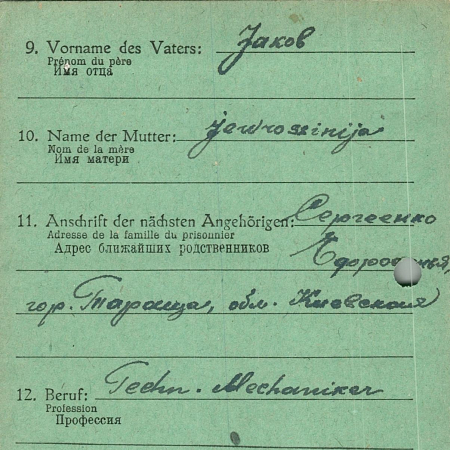 9. Vorname des Vaters: Jakob
Prénom du père
Имя отца
10. Name der Mutter: Jewrossinija
Nom de la mère
Имя матери
11. Anschrift der nächsten Angehörigen: Сергеенко
Adresse de la famille du prisonnier
Адрес ближайших родственников
гор. Тараща, обл. Киевская
12. Beruf: Techn. Mechaniker
Profession
Профессия